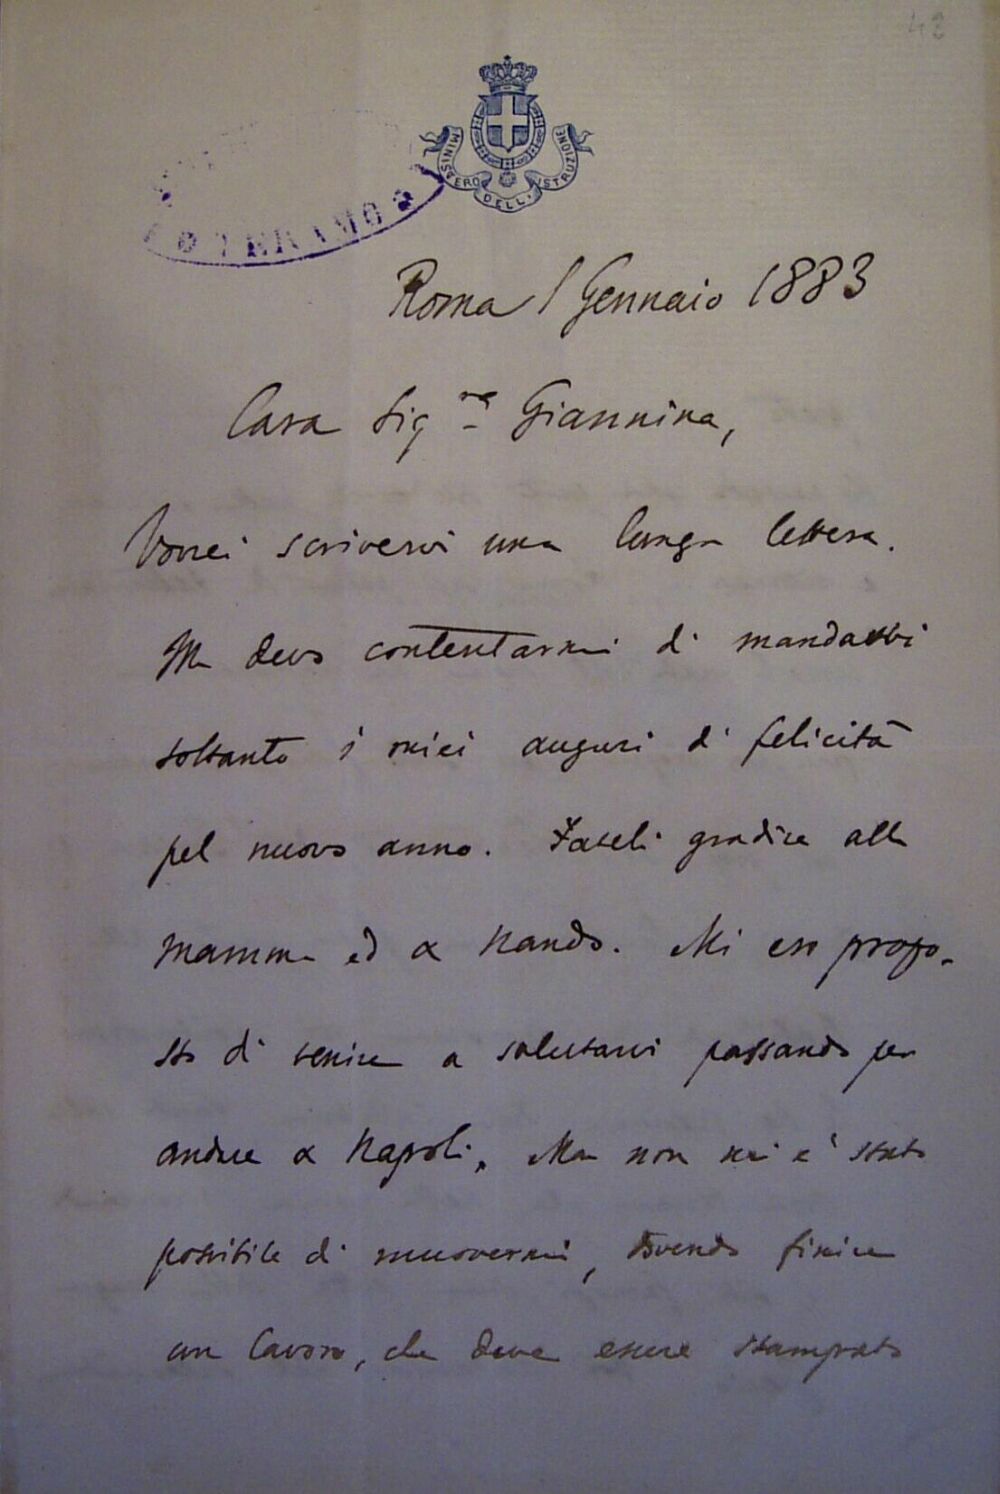 43
MINISTERO DELL' ISTRUZIONE
TERAMO
Roma 1 Gennaio 1883
Cara Sig.ra Giannina,
Vorrei scrivervi una lunga lettera.
Ma devo contentarmi di mandarvi
soltanto i miei auguri di felicità
pel nuovo anno. Fateli gradire alla
mamma ed a Nando. Mi ero propo-
sto di venire a salutarvi passando per
andare a Napoli. Ma non mi è stato
possibile di muovermi, dovendo finire
un lavoro, che deve essere stampato